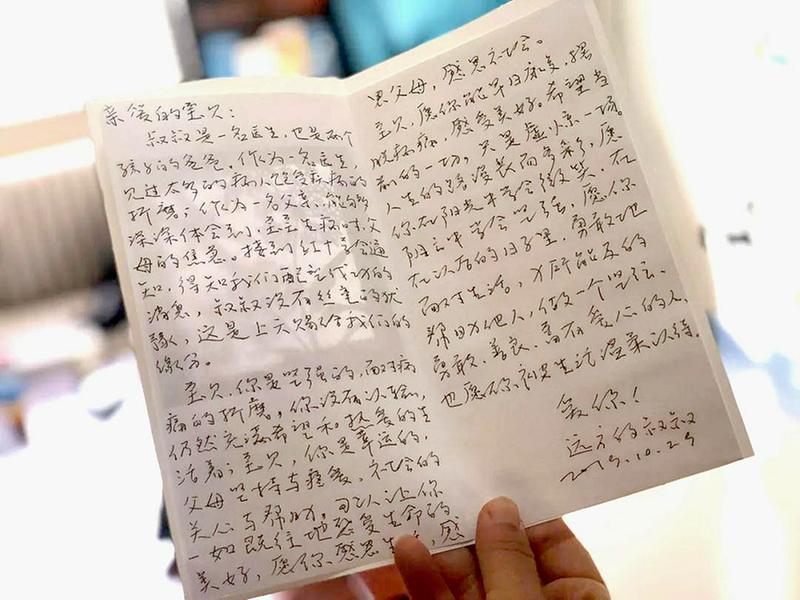 亲爱的宝贝：
叔叔是一名医生，也是两个
孩子的爸爸。作为一名医生，
见过太多的病人饱受疾病的
折磨；作为一名父亲，能够
深深体会到，宝宝生病时，父
母的焦急。接到红十字会通
知，得知我们配型成功的
消息，叔叔没有丝毫的犹
豫，这是上天赐给我们的
缘分。
宝贝，你是坚强的，面对病
病的折磨，你没有认输，
仍然充满希望和热爱的生
活着；宝贝，你是幸运的，
父母坚持与疼爱，社会的
关心与帮助，可以让你
一如既往地感受生命的
美好，愿你感恩生，感
恩父母，感恩社会。
宝贝，愿你能早日康复，摆
脱疾病，感受美好。希望当
前的一切，只是虚惊一场。
人生的路漫长而多彩，愿
你在阳光中学会微笑，在
阴云中学会坚强，愿你
在以后的日子里，勇敢地
面对生活，力所能及的
帮助他人，做一个坚强、
勇敢、善良、富有爱心的人，
也愿你被生活温柔以待。
爱你！
远方的叔叔
2019.10.29